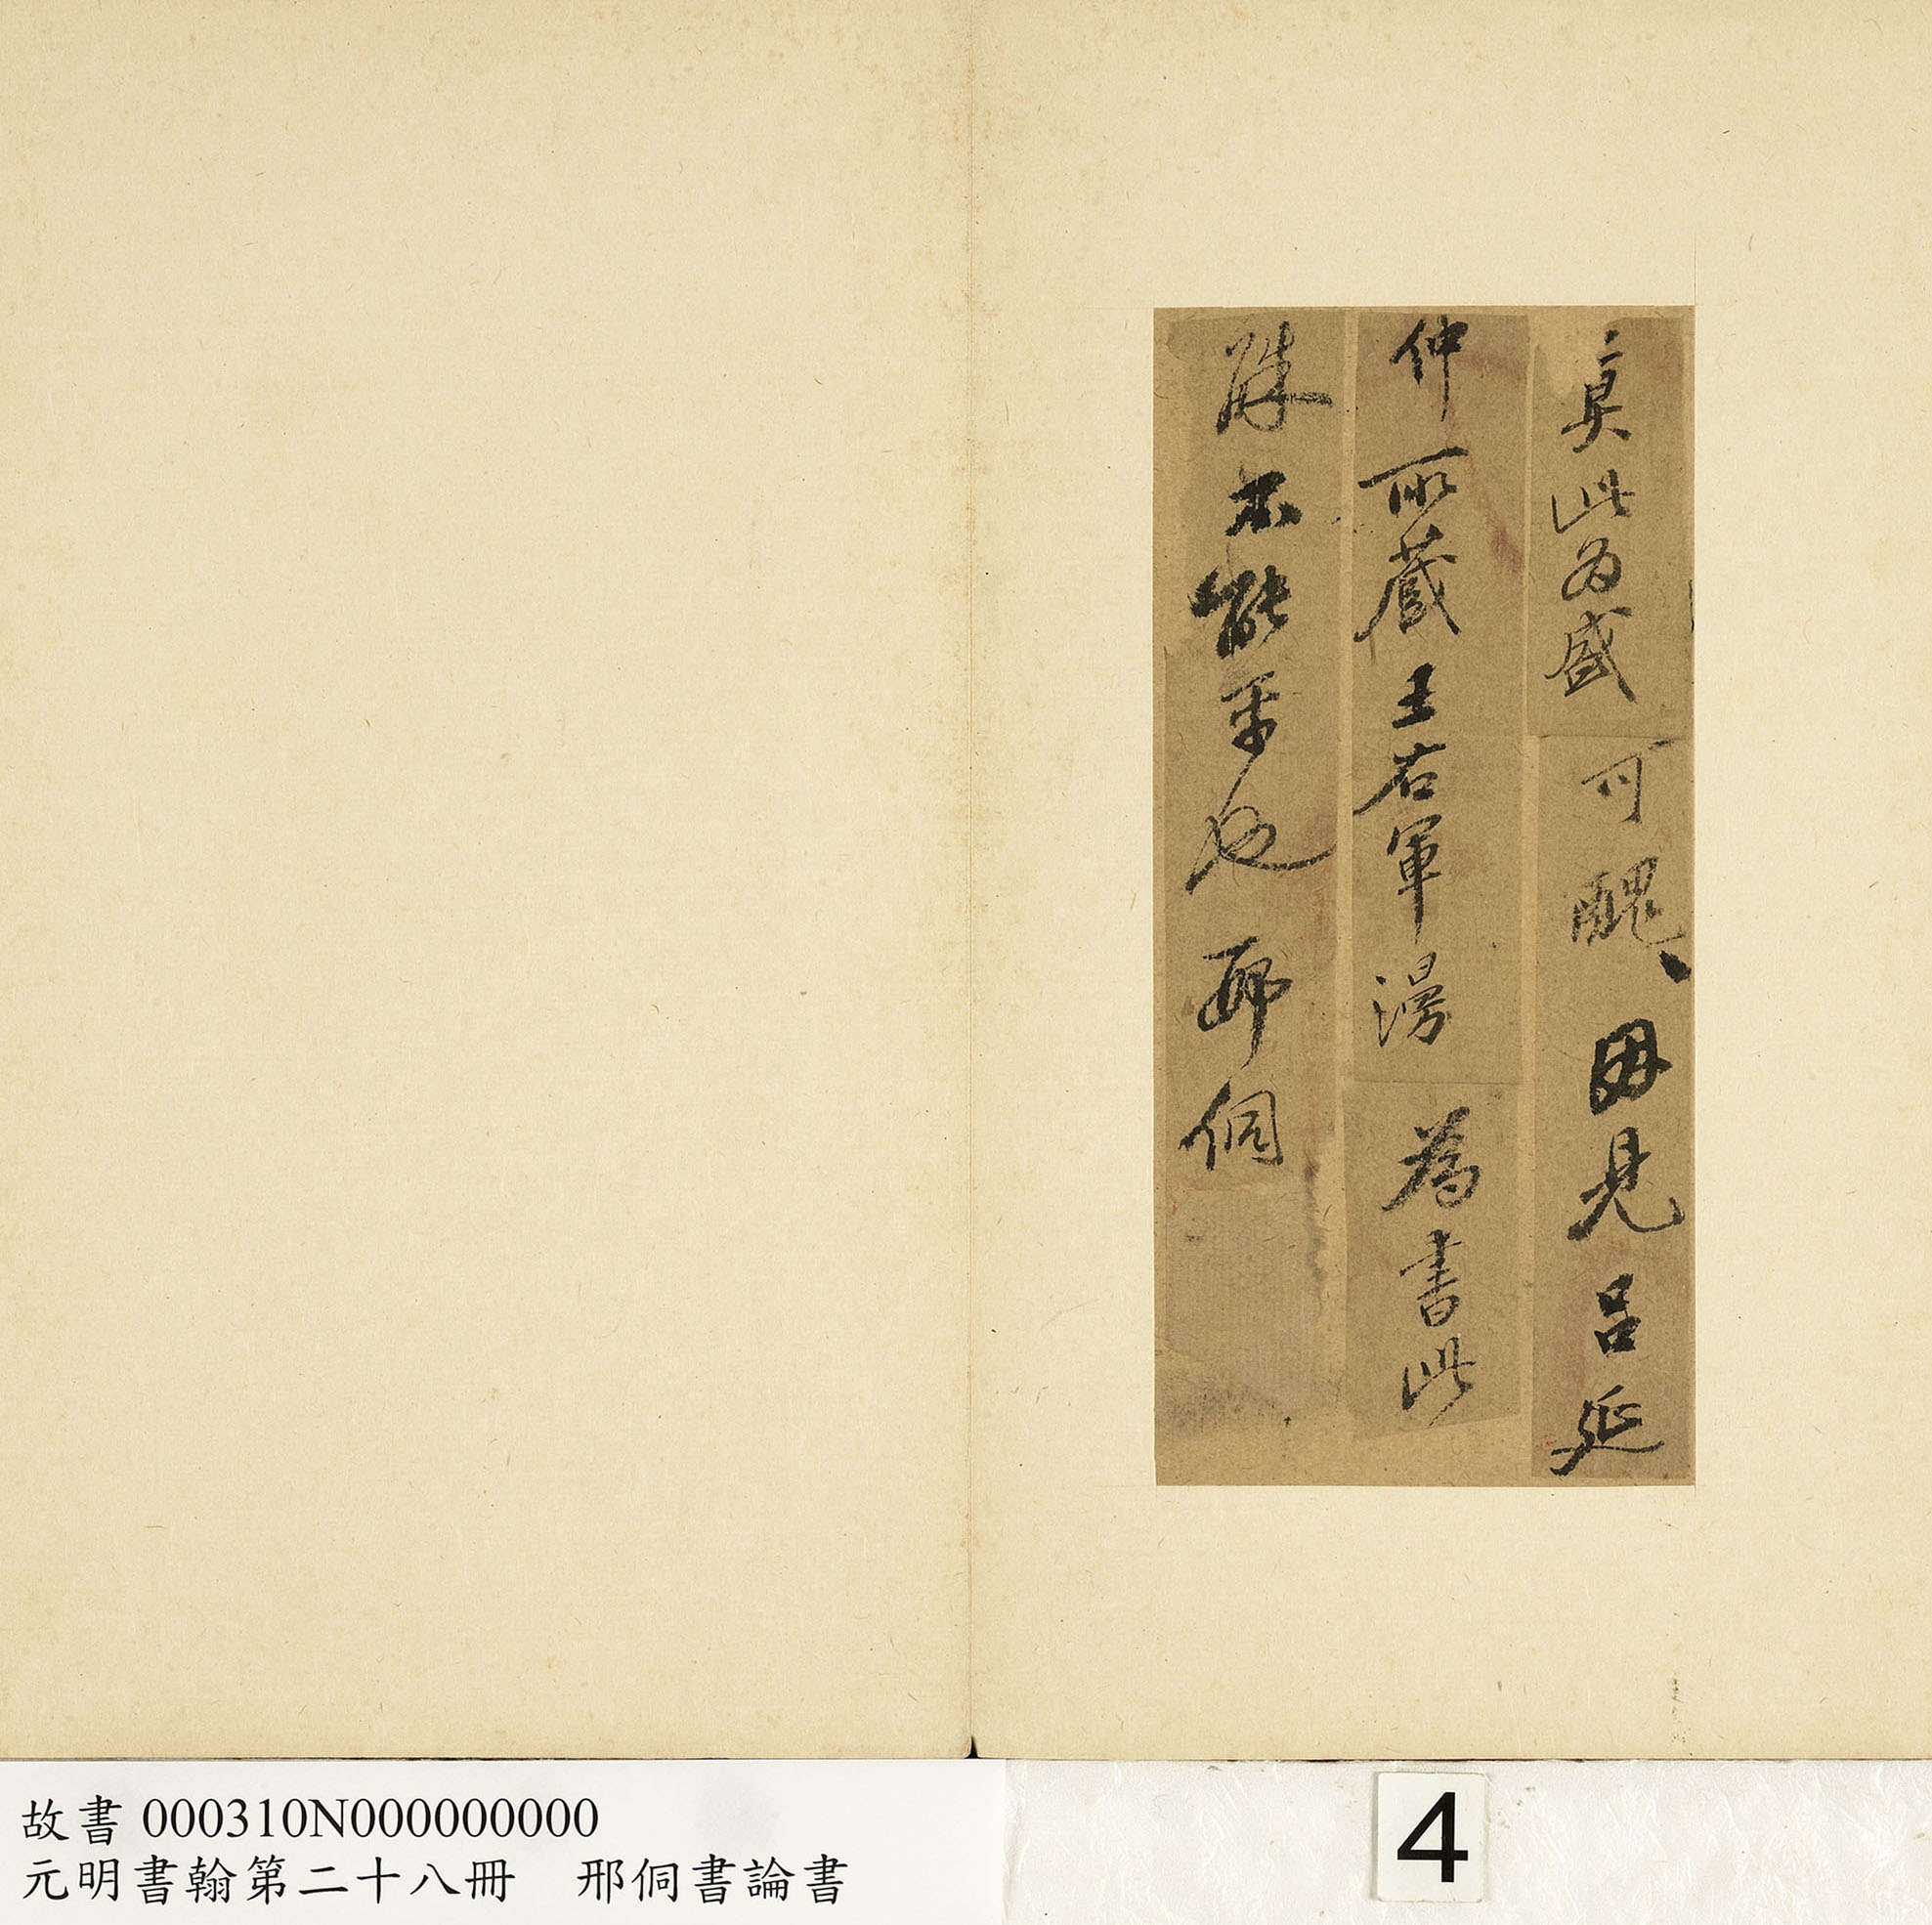 莫此为盛可醜、因見呂延
仲所藏王右軍漫為書此
殊不能平也邢侗
故書 000310N000000000
元明書翰第二十八冊　邢侗書論書
4